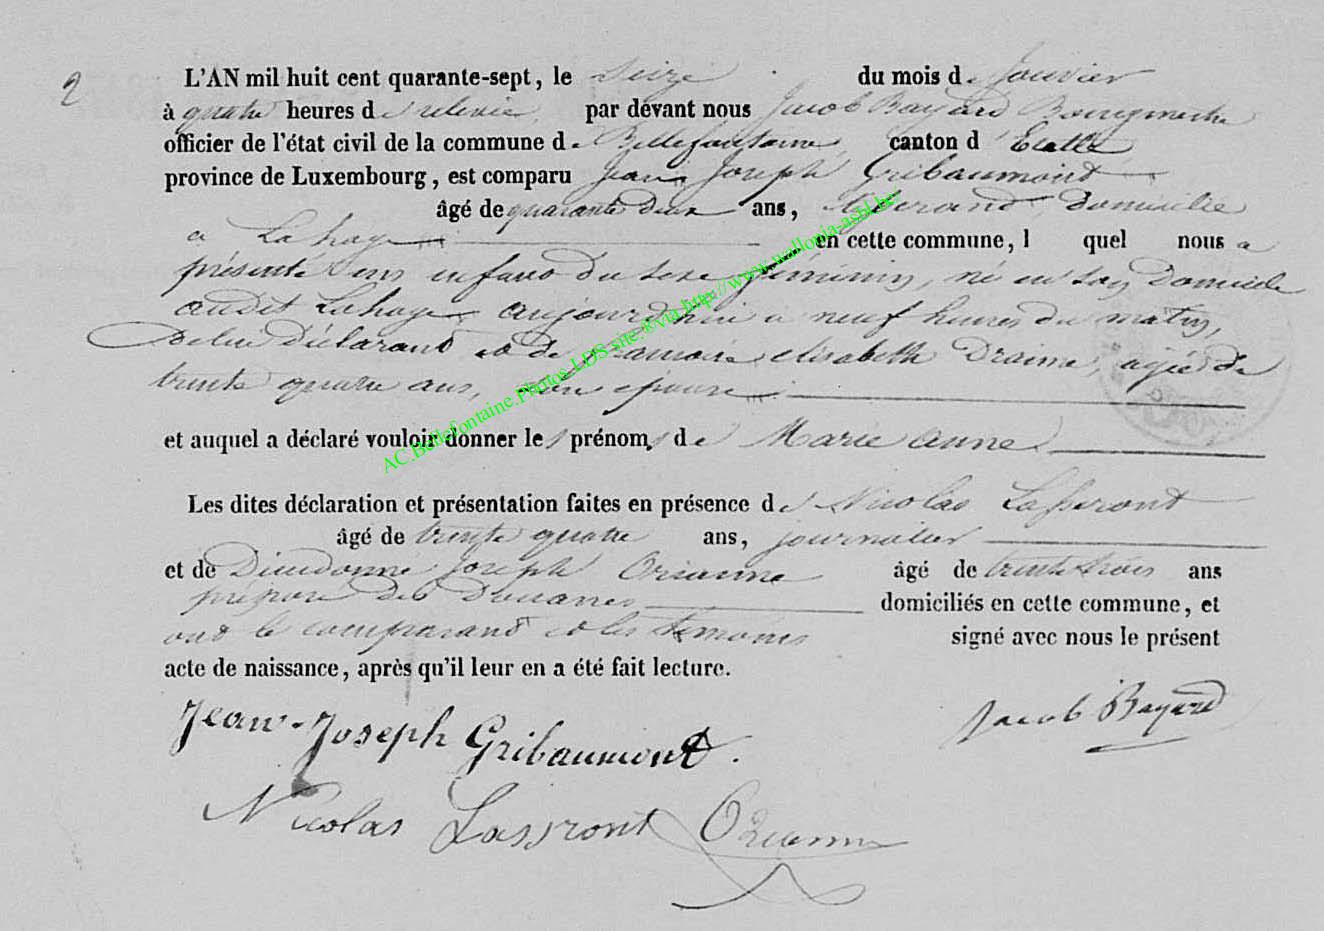 2
L'AN mil huit cent quarante-sept, le Seize du mois de Janvier
à quatre heures de relevée, par devant nous Jacob Bayard Bourgmestre
officier de l'état civil de la commune de Bellefontaine, canton d'Etalle
province de Luxembourg, est comparu Jean Joseph Gribaumont
âgé de quarante deux ans, domicilié
a Lahage en cette commune, l quel nous a
présenté un enfant du sexe féminin, né en son Domicile
audit Lahage aujourd'hui a neuf heures du matin,
De lui Déclarant et de elisabeth agée de
trente quatre ans, son épouse
et auquel a déclaré vouloir donner les prénoms de Marie anne
Les dites déclaration et présentation faites en présence de Nicolas Lassront
âgé de trente quatre ans, journalier
et de Dieudonné Joseph Orianne âgé de trente trois ans
préposé des Douanes domiciliés en cette commune, et
ont le comparant et les témoins signé avec nous le présent
acte de naissance, après qu'il leur en a été fait lecture.
Jean-Joseph Gribaumont. Jacob Bayard
Nicolas Lassront Orianne
AC.Bellefontaine.Photos.LDS.site.®via.http://www.wallonia-asbl.be/